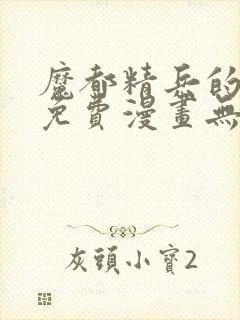 魔都精兵的
免費漫畫無
灰頭小寶2